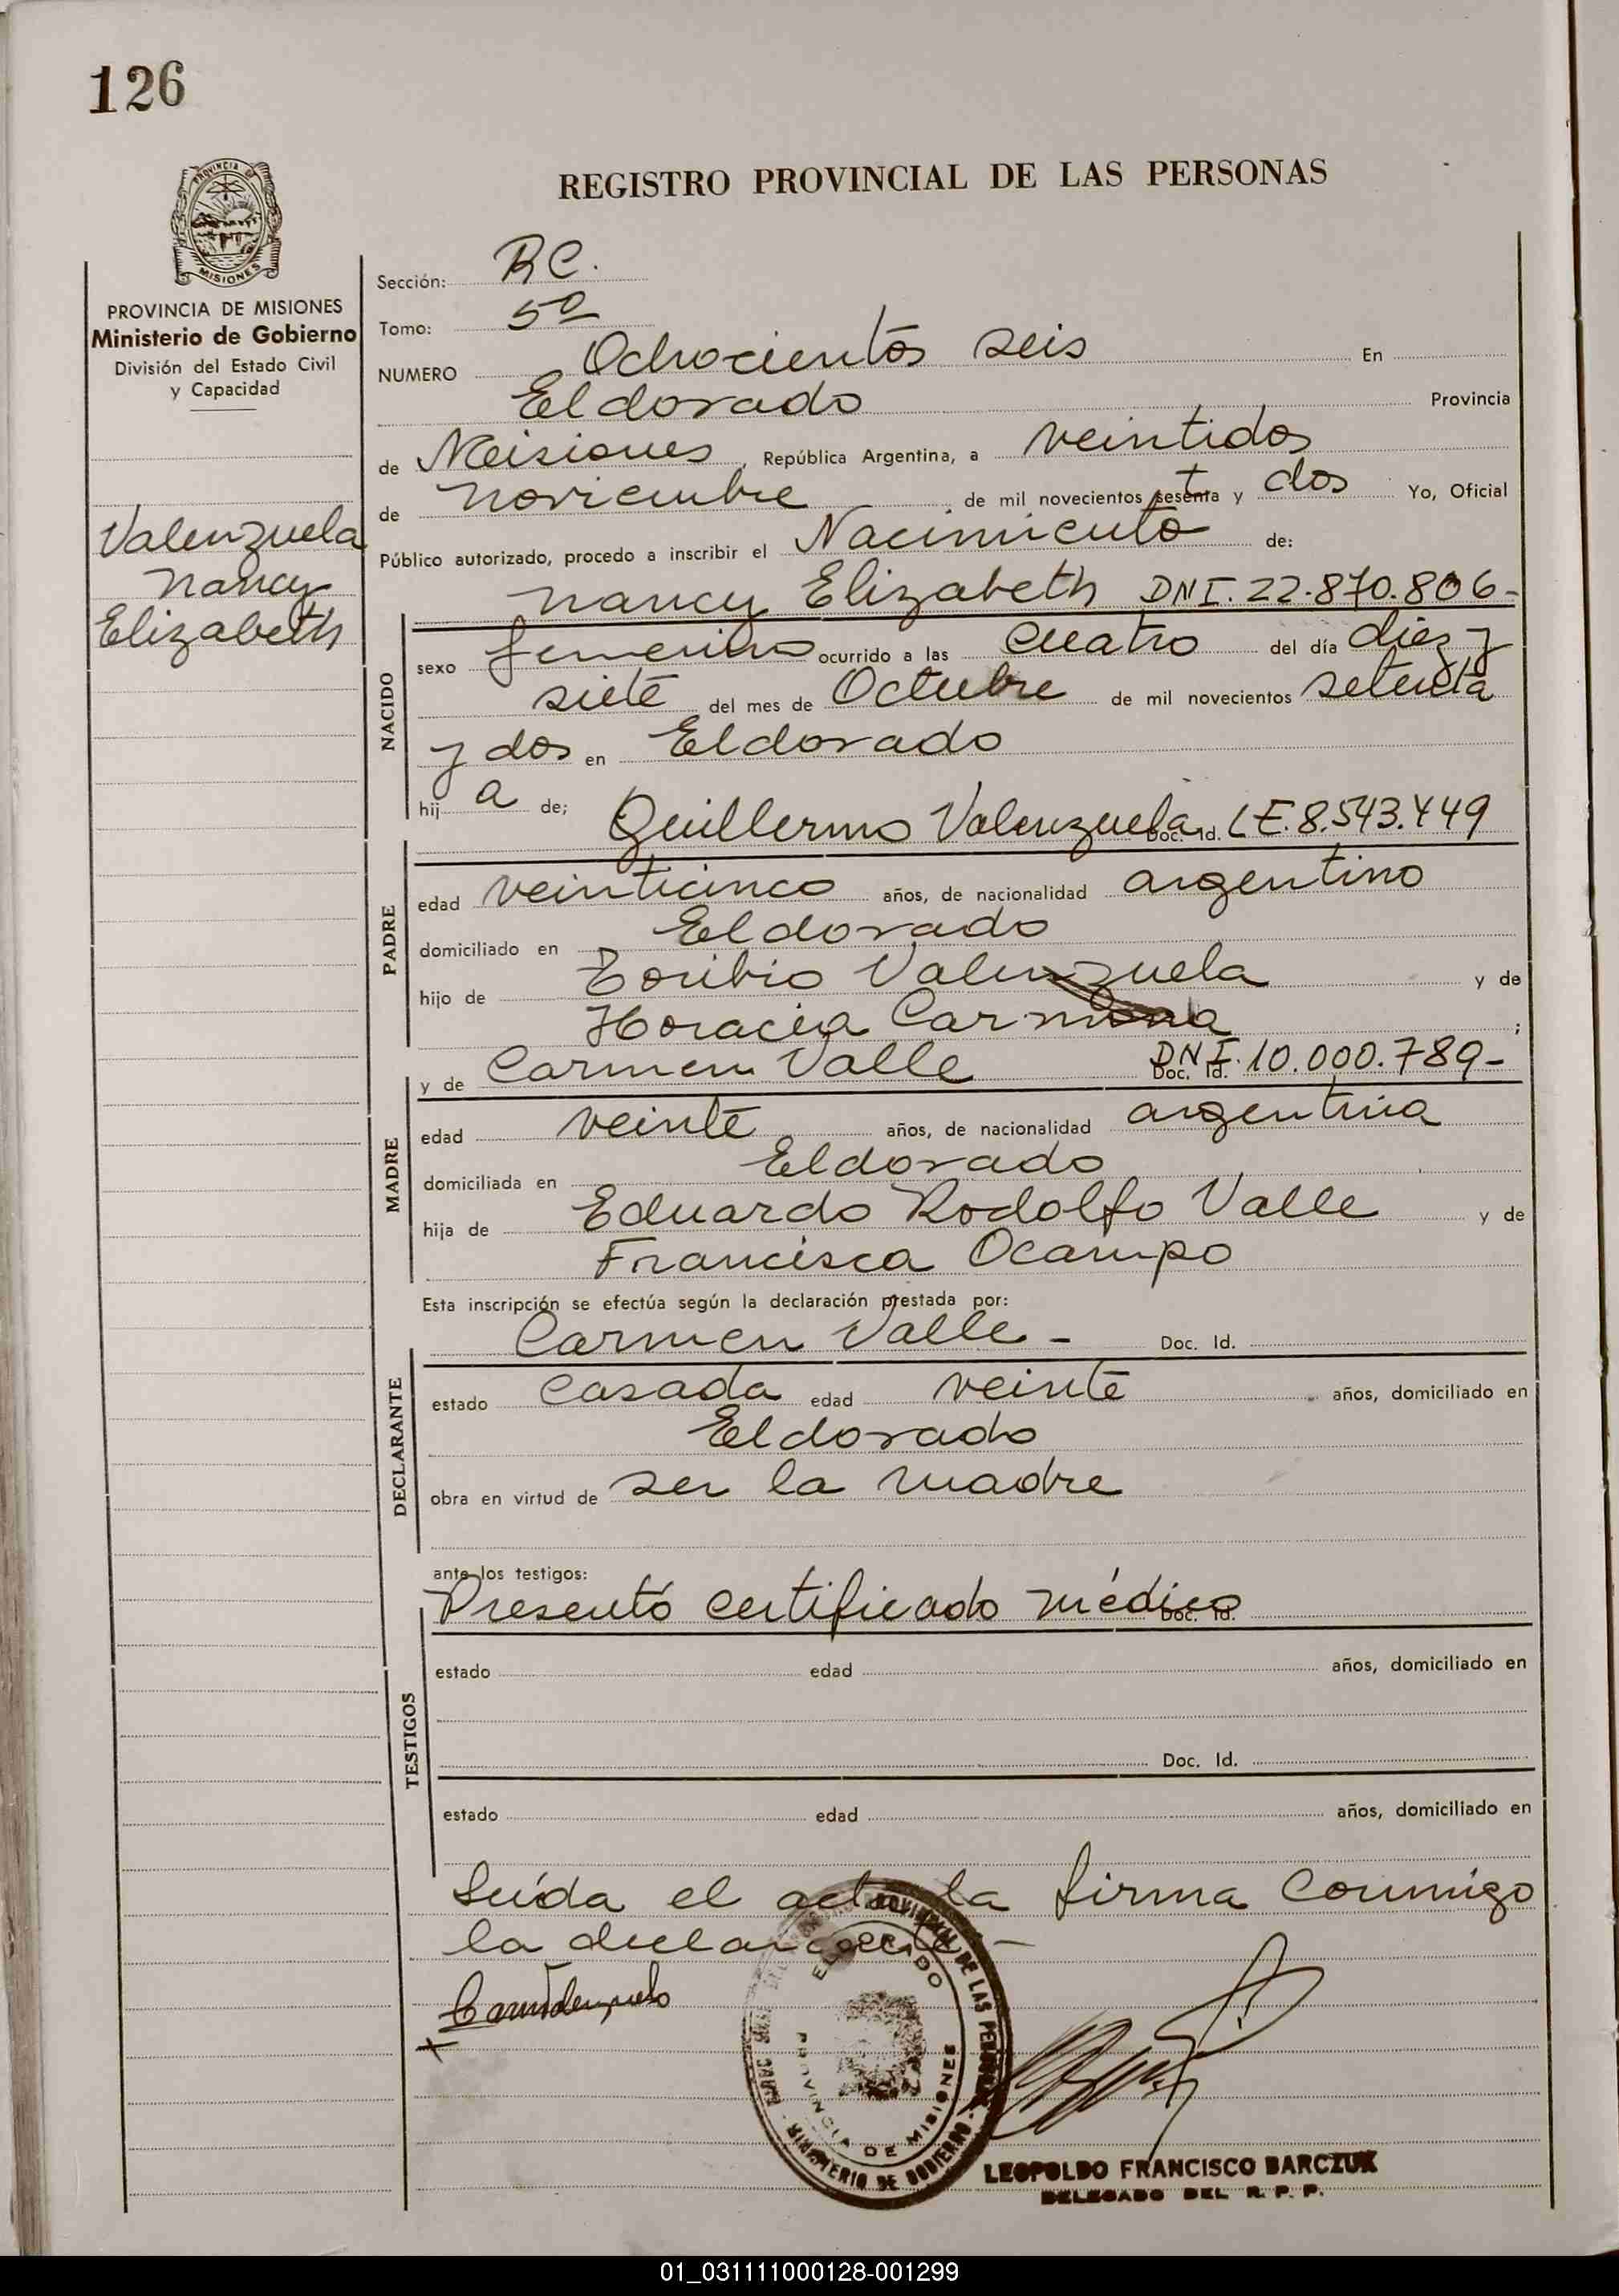 126
PROVINCIA DE
MISIONES
REGISTRO PROVINCIAL DE LAS PERSONAS
PROVINCIA DE MISIONES
Ministerio de Gobierno
División del Estado Civil
y Capacidad
Valenzuela
Nancy
Elizabeth
Sección: RC.
Tomo: 5º
NUMERO Ochocientos seis En
Eldorado Provincia
de Misiones, República Argentina, a veintidos
de noviembre de mil novecientos setenta y dos Yo, Oficial
Público autorizado, procedo a inscribir el Nacimiento de:
Nancy Elizabeth DNI. 22.870.806-
NACIDO
sexo femenino ocurrido a las cuatro del día diez y
siete del mes de Octubre de mil novecientos setenta
y dos en Eldorado
hij a de;
Guillermo Valenzuela Doc. Id. LE. 8.543.449
PADRE
edad veinticinco años, de nacionalidad argentino
domiciliado en Eldorado
hijo de Toribio Valenzuela y de
Horacia Carmona ;
y de Carmen Valle Doc. Id. DNI. 10.000.789-
MADRE
edad veinte años, de nacionalidad argentina
domiciliada en Eldorado
hija de Eduardo Rodolfo Valle y de
Francisca Ocampo
Esta inscripción se efectúa según la declaración prestada por:
Carmen Valle - Doc. Id.
DECLARANTE
estado casada edad veinte años, domiciliado en
Eldorado
obra en virtud de ser la madre
ante los testigos:
Presentó certificado médico Doc. Id.
TESTIGOS
estado edad años, domiciliado en
Doc. Id.
estado edad años, domiciliado en
Leída el acta la firma conmigo
la declarante -
ELDORADO
PROVINCIA DE MISIONES
MINISTERIO DE GOBIERNO
LEOPOLDO FRANCISCO BARCZUK
DELEGADO DEL R. P. P.
01_031111000128-001299